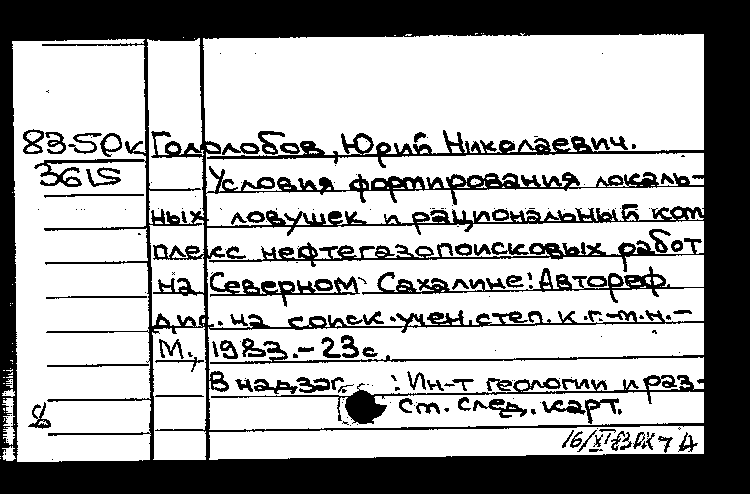 83-5Рк Гололобов, Юрий Николаевич.
3615 Условия формирования локаль-
ных ловушек и рациональный ком
плекс нефтегазопоисковых работ
на Северном Сахалине: Автореф.
дис. на соиск. учен. степ. к. г.-м. н. -
М., 1983. - 23 с.
В надзаг. : Ин-т геологии и раз-
См. след. карт.